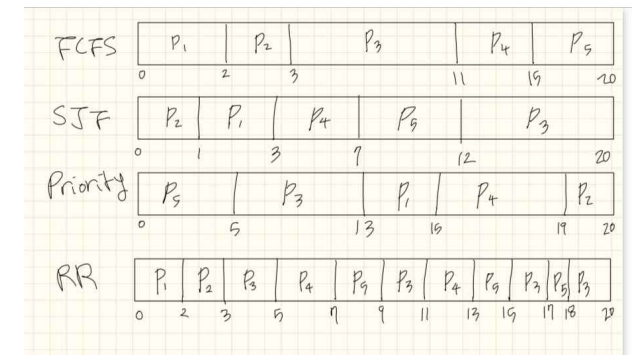 FCFS P1 P2 P3 P4 P5
0 2 3 11 15 20
SJF P2 P1 P4 P5 P3
0 1 3 7 12 20
Priority P5 P3 P1 P4 P2
0 5 13 15 19 20
RR P1 P2 P3 P4 P5 P3 P4 P5 P3 P5 P3
0 2 3 5 7 9 11 13 15 17 18 20